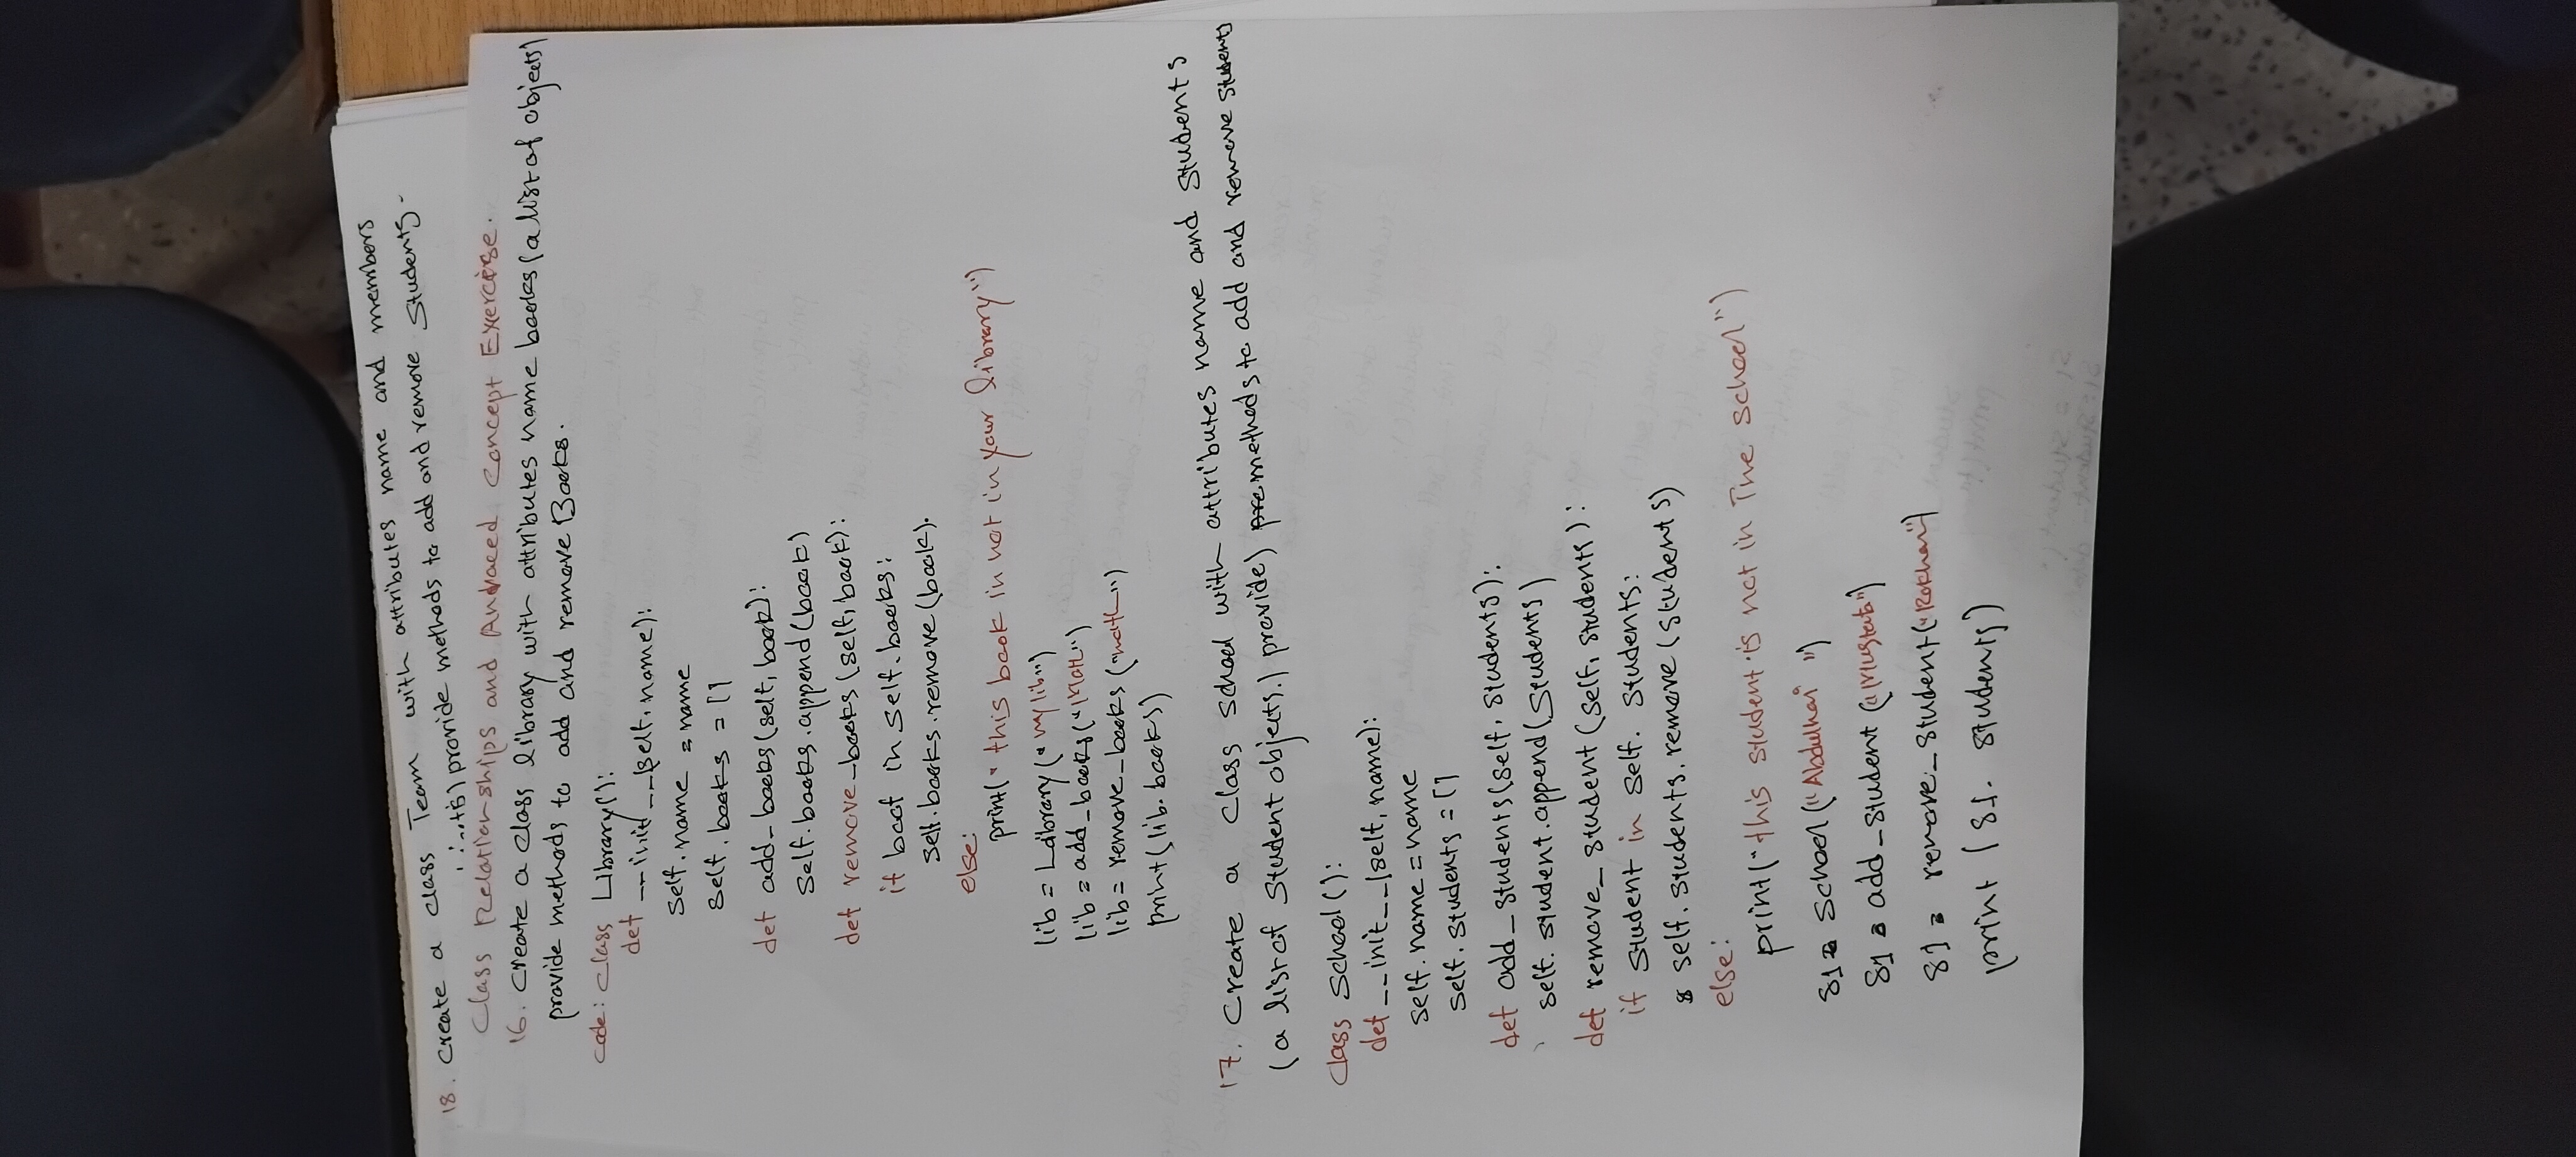 18. Create a class Team with attributes name and members
provide methods to add and remove Students.
Class Relationships and Andvaced Concept Exercise.
16. Create a class library with attributes name books (a list of objects)
provide methods to add and remove Books.
code: class Library():
def __init__(self, name):
self.name = name
self.books = []
def add_books(self, book):
self.books.append(book)
def remove_books(self, book):
if boot in self.books:
self.books.remove(book).
else:
print("this book in not in your library")
lib = Library("my lib")
lib = add_books("Math")
lib = remove_books("math")
print(lib.books)
17. Create a class school with attributes name and students
(a list of student objects.) provide) methods to add and remove students
class School():
def __init__(self, name):
self.name = name
self.students = []
def add_students(self, students):
self.student.append(students)
def remove_student(self, students):
if student in self.students:
self.students.remove(students)
else:
print("this student is not in The school")
S1 = School("Abdulhai")
S1 = add_student("Mustafa")
S1 = remove_student("Rokhan")
print (S1. students)